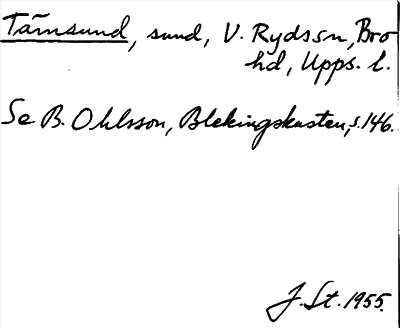 Tärnsund, sund, V. Rydssn, Bro
hd, Upps. l.
Se B. Ohlsson, Blekingskusten, s. 146.
J. St. 1955.